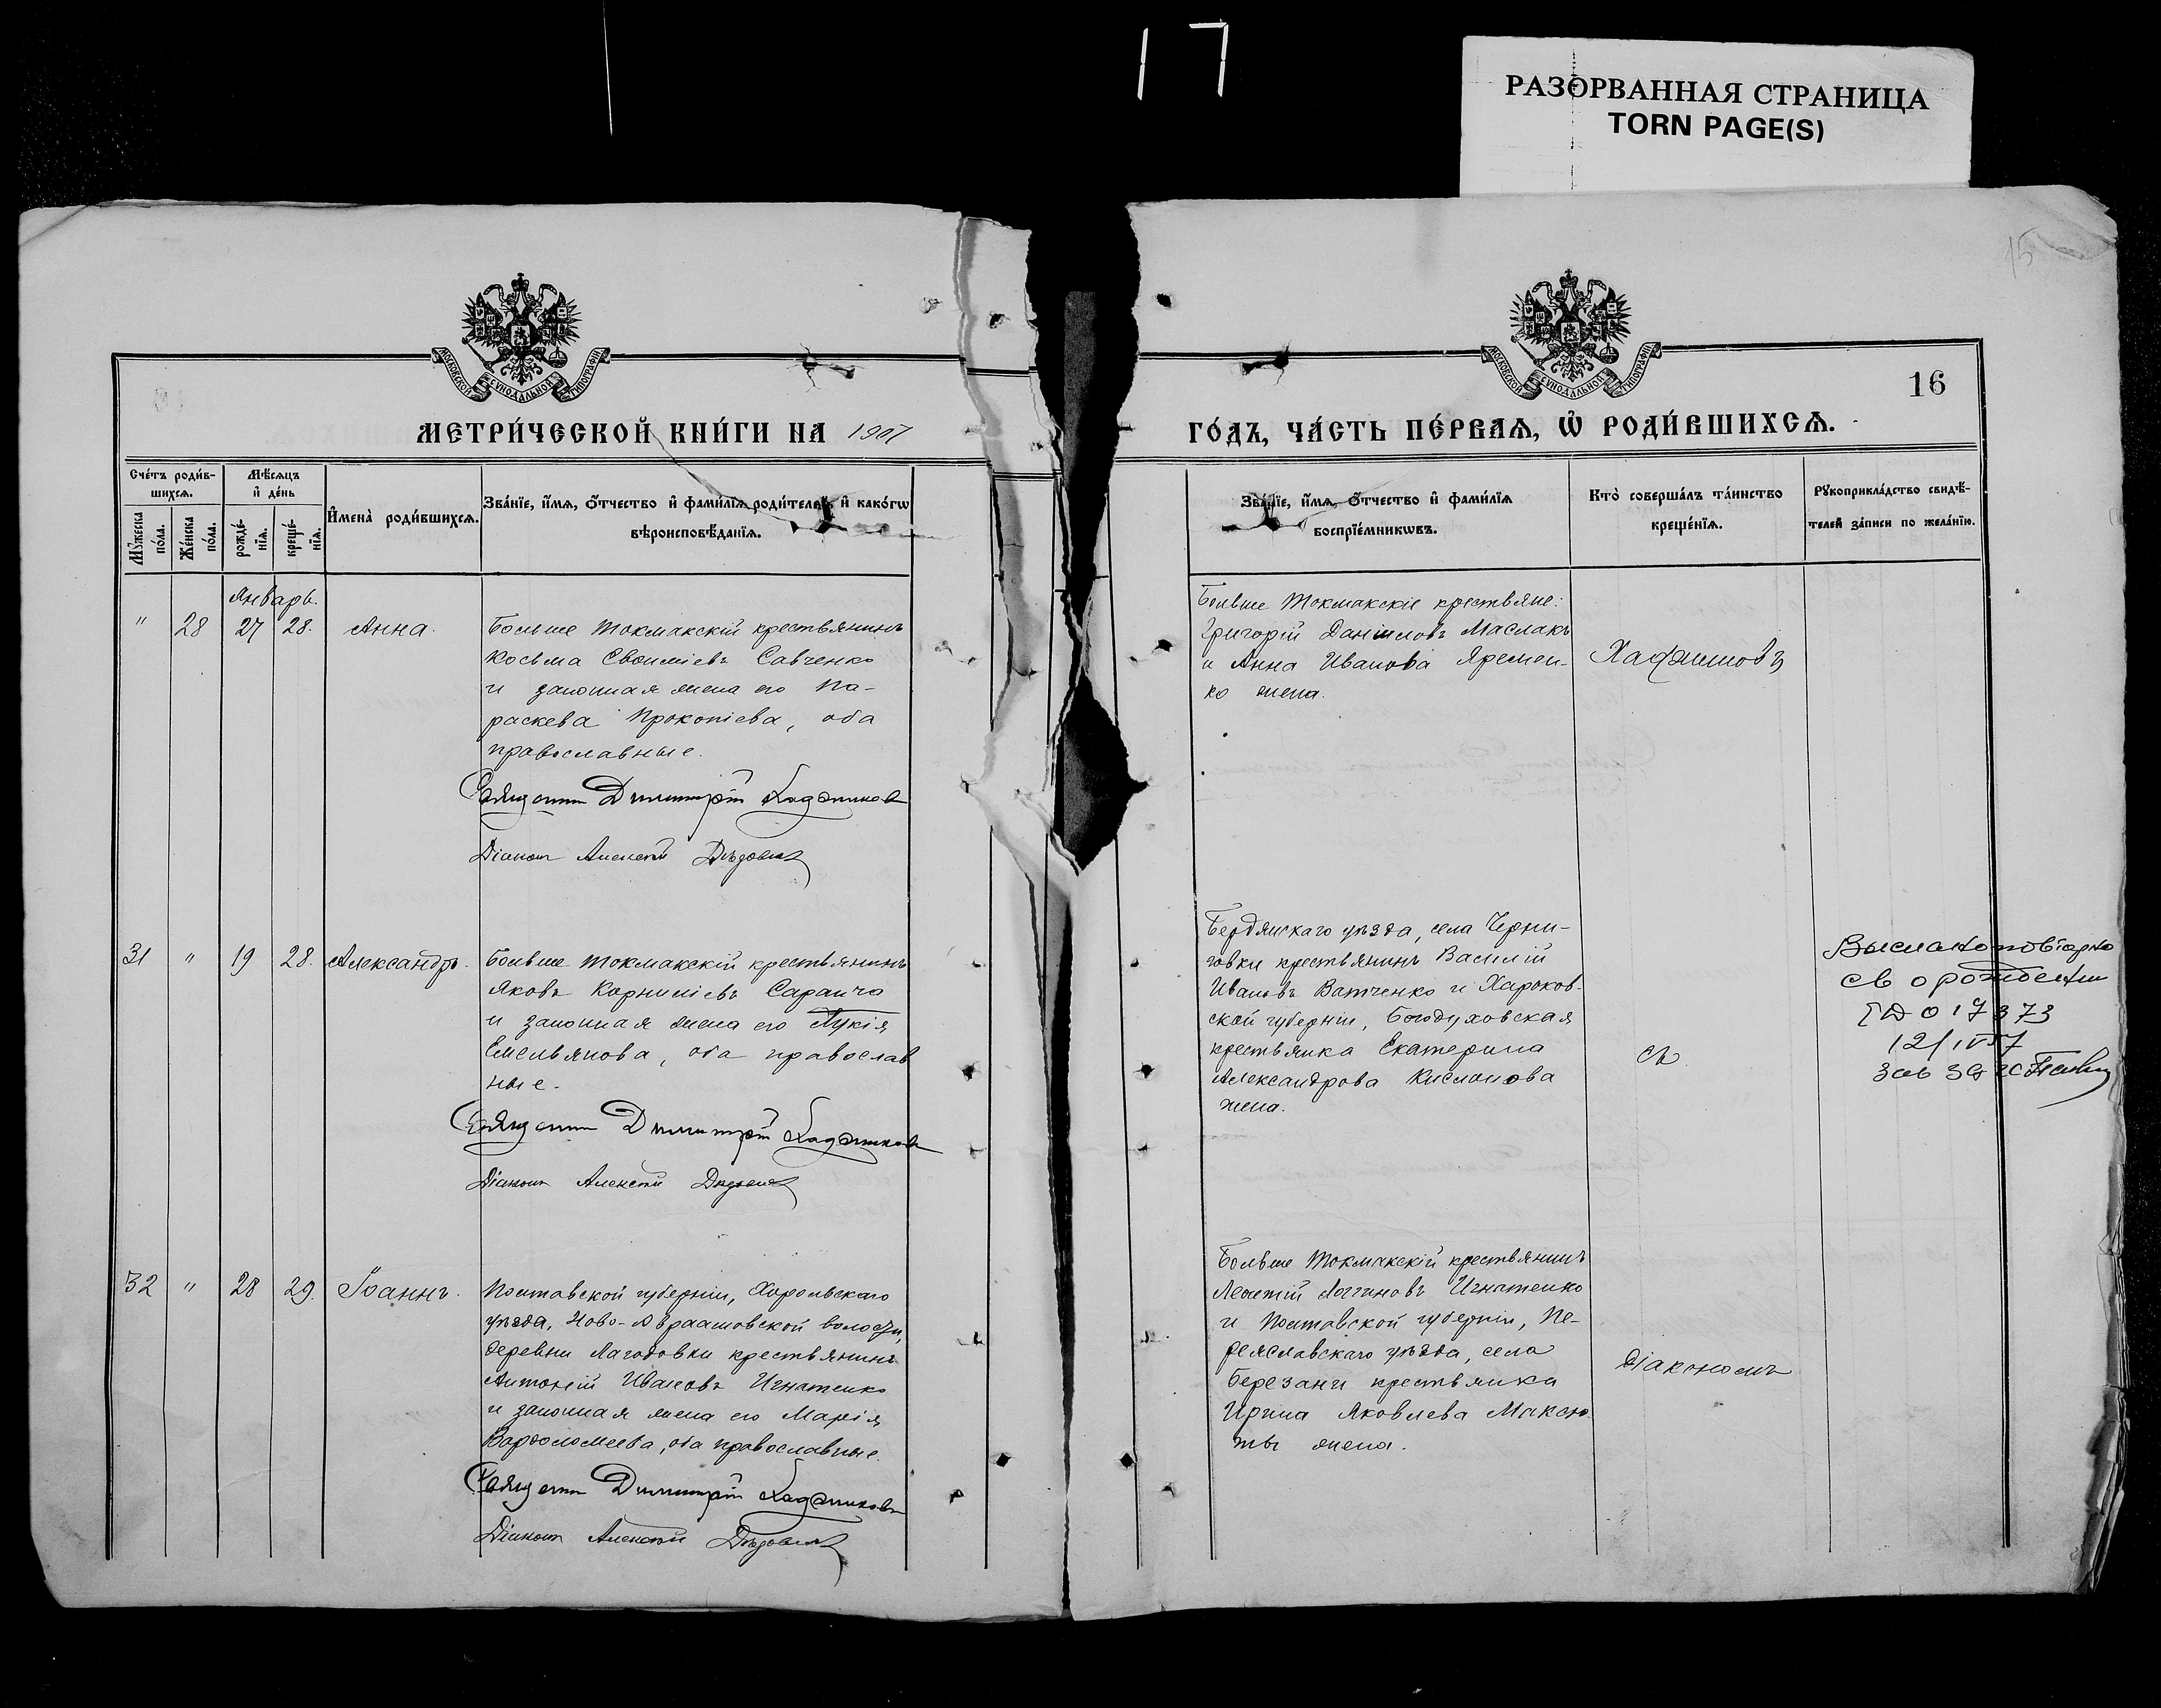 17
РАЗОРВАННАЯ СТРАНИЦА
TORN PAGE(S)
15
МОСКОВСКОЙ СѴНОДАЛЬНОЙ ТИПОГРАФІИ
МОСКОВСКОЙ СѴНОДАЛЬНОЙ ТИПОГРАФІИ
16
МЕТРИ́ЧЕСКОЙ КНИ́ГИ НА 1907
ГО́ДЪ, ЧА́СТЬ ПЕ́РВАѦ, Ѽ РОДИ́ВШИХСѦ.
Сче́тъ роди́в-
шихсѧ.
Мꙋ́жеска по́ла.
Же́нска по́ла.
Мѣ́сѧцъ
и҆ де́нь
рожде́-
нїѧ.
креще́-
нїѧ.
И҆мена̀ роди́вшихсѧ.
Зва́нїе, и҆́мѧ, ѻ҆́тчество и҆ фами́лїѧ роди́телей, и҆ како́гѡ
вѣроисповѣ́данїѧ.
Зва́нїе, и҆́мѧ, ѻ҆́тчество и҆ фами́лїѧ
воспрїе́мникѡвъ.
Кто̀ соверша́лъ та́инство
креще́нїѧ.
Рꙋкоприкла́дство свидѣ́-
телей за́писи по жела́нїю.
Январь.
" 28 27 28. Анна.
Больше Токмакскій крестьянинъ
Косьма Савченко
и законная жена его Па-
раскева Прокопіева, оба
православные.
Священ Димитрій
Діаконъ Алексѣй
Больше Токмакскіе крестьяне:
Григорій Даніиловъ Маслакъ
и Анна Иванова Яремен-
ко жена.
31 " 19 28. Александръ.
Больше Токмакскій крестьянинъ
Яковъ Корниліевъ
и законная жена его Лукія
Емельянова, оба православ
ные.
Священ Димитрій
Діаконъ Алексѣй
Бердянскаго уѣзда, села Черни-
говки крестьянинъ Василій
Ивановъ Ватченко и Харьков-
ской губерніи, Богодуховская
крестьянка Екатерина
Александрова
жена.
Выслано повторно
св о рождении
12/IV 57
зав ЗАГС
32 " 28 29. Іоаннъ.
Полтавской губерніи, Хорольскаго
уѣзда, Ново-Авраамовской волости,
деревни Лагодовки крестьянинъ
Антоній Ивановъ Игнатенко
и законная жена его Марія
Варѳоломеева, оба православные.
Священ Димитрій
Діаконъ Алексѣй
Больше Токмакскій крестьянинъ
Леонтій Логгиновъ Игнатенко
и Полтавской губерніи, Пе-
реяславскаго уѣзда, села
Березани крестьянка
Ирина Яковлева Максю-
ты жена.
діакономъ